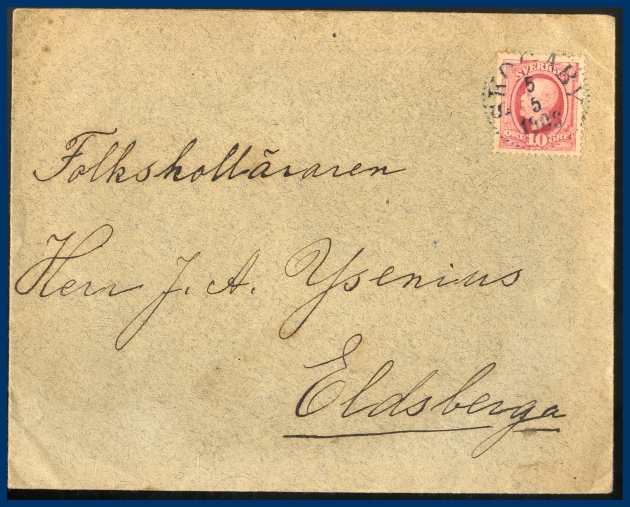 SKOGABY
5
5
SVERIGE
ÖRE 10 ÖRE
Folkskolläraren
Herr J. A. Ysenius
Eldsberga